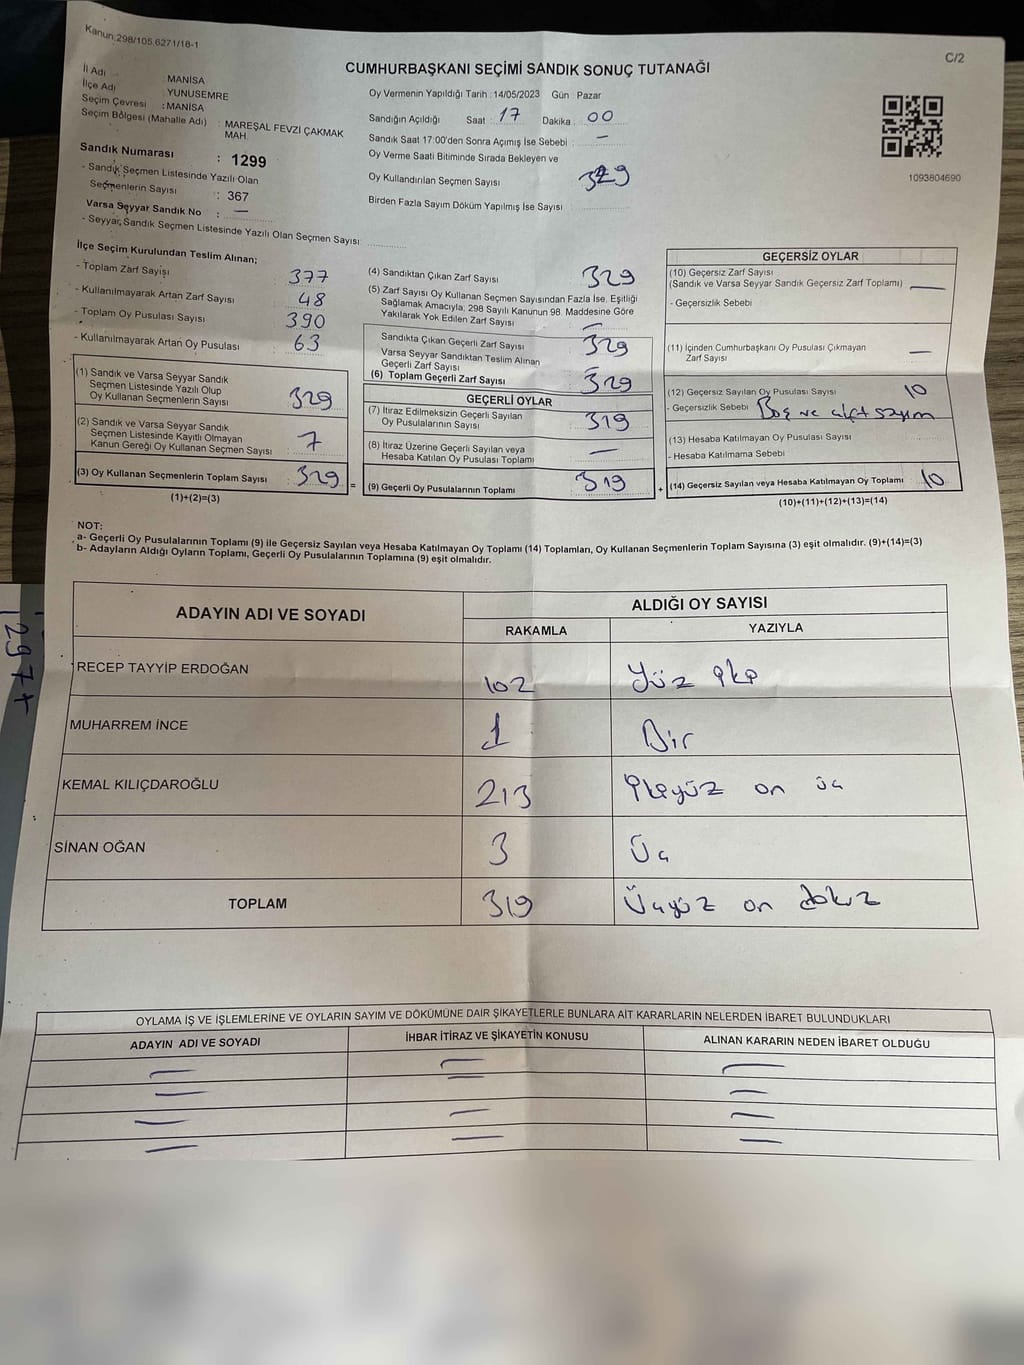 Kanun.298/105.6271/18-1
C/2
CUMHURBAŞKANI SEÇİMİ SANDIK SONUÇ TUTANAĞI
İl Adı MANİSA
İlçe Adı YUNUSEMRE
Seçim Çevresi : MANİSA
Seçim Bölgesi (Mahalle Adı) : MAREŞAL FEVZİ ÇAKMAK MAH.
Sandık Numarası : 1299
- Sandık Seçmen Listesinde Yazılı Olan
Seçmenlerin Sayısı : 367
Varsa Seyyar Sandık No : —
- Seyyar Sandık Seçmen Listesinde Yazılı Olan Seçmen Sayısı:
Oy Vermenin Yapıldığı Tarih : 14/05/2023 Gün Pazar
Sandığın Açıldığı Saat : 17 Dakika : 00
Sandık Saat 17:00'den Sonra Açımış İse Sebebi : —
Oy Verme Saati Bitiminde Sırada Bekleyen ve
Oy Kullandırılan Seçmen Sayısı 329
Birden Fazla Sayım Döküm Yapılmış İse Sayısı
1093804690
İlçe Seçim Kurulundan Teslim Alınan;
- Toplam Zarf Sayısı 377
- Kullanılmayarak Artan Zarf Sayısı 48
- Toplam Oy Pusulası Sayısı 390
- Kullanılmayarak Artan Oy Pusulası 63
(1) Sandık ve Varsa Seyyar Sandık
Seçmen Listesinde Yazılı Olup
Oy Kullanan Seçmenlerin Sayısı 329
(2) Sandık ve Varsa Seyyar Sandık
Seçmen Listesinde Kayıtlı Olmayan
Kanun Gereği Oy Kullanan Seçmen Sayısı 7
(3) Oy Kullanan Seçmenlerin Toplam Sayısı 329 =
(1)+(2)=(3)
(4) Sandıktan Çıkan Zarf Sayısı 329
(5) Zarf Sayısı Oy Kullanan Seçmen Sayısından Fazla İse, Eşitliği
Sağlamak Amacıyla, 298 Sayılı Kanunun 98. Maddesine Göre
Yakılarak Yok Edilen Zarf Sayısı —
Sandıkta Çıkan Geçerli Zarf Sayısı 329
Varsa Seyyar Sandıktan Teslim Alınan
Geçerli Zarf Sayısı —
(6) Toplam Geçerli Zarf Sayısı 329
GEÇERLİ OYLAR
(7) İtiraz Edilmeksizin Geçerli Sayılan
Oy Pusulalarının Sayısı 319
(8) İtiraz Üzerine Geçerli Sayılan veya
Hesaba Katılan Oy Pusulası Toplamı —
(9) Geçerli Oy Pusulalarının Toplamı 319 +
GEÇERSİZ OYLAR
(10) Geçersiz Zarf Sayısı
(Sandık ve Varsa Seyyar Sandık Geçersiz Zarf Toplamı) —
- Geçersizlik Sebebi
(11) İçinden Cumhurbaşkanı Oy Pusulası Çıkmayan
Zarf Sayısı —
(12) Geçersiz Sayılan Oy Pusulası Sayısı 10
- Geçersizlik Sebebi Boş ve çift sayım
(13) Hesaba Katılmayan Oy Pusulası Sayısı
- Hesaba Katılmama Sebebi
(14) Geçersiz Sayılan veya Hesaba Katılmayan Oy Toplamı 10
(10)+(11)+(12)+(13)=(14)
NOT:
a- Geçerli Oy Pusulalarının Toplamı (9) ile Geçersiz Sayılan veya Hesaba Katılmayan Oy Toplamı (14) Toplamları, Oy Kullanan Seçmenlerin Toplam Sayısına (3) eşit olmalıdır. (9)+(14)=(3)
b- Adayların Aldığı Oyların Toplamı, Geçerli Oy Pusulalarının Toplamına (9) eşit olmalıdır.
ADAYIN ADI VE SOYADI ALDIĞI OY SAYISI
RAKAMLA YAZIYLA
RECEP TAYYİP ERDOĞAN 102 Yüz iki
MUHARREM İNCE 1 Bir
KEMAL KILIÇDAROĞLU 213 İkiyüz on üç
SİNAN OĞAN 3 Üç
TOPLAM 319 Üçyüz on dokuz
1297+
OYLAMA İŞ VE İŞLEMLERİNE VE OYLARIN SAYIM VE DÖKÜMÜNE DAİR ŞİKAYETLERLE BUNLARA AİT KARARLARIN NELERDEN İBARET BULUNDUKLARI
ADAYIN ADI VE SOYADI İHBAR İTİRAZ VE ŞİKAYETİN KONUSU ALINAN KARARIN NEDEN İBARET OLDUĞU